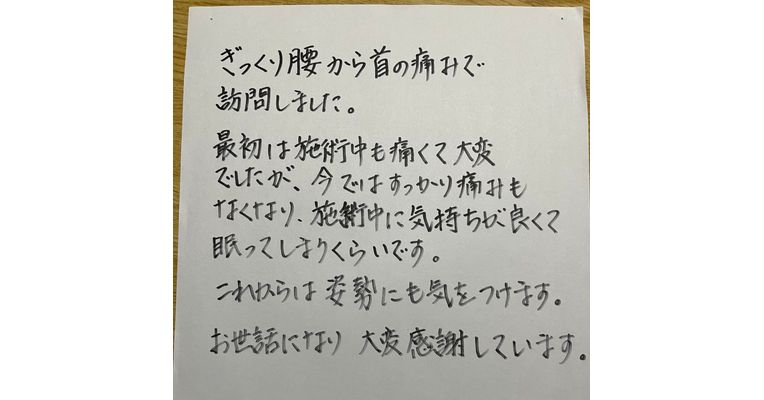 ぎっくり腰から首の痛みで
訪問しました。
最初は施術中も痛くて大変
でしたが、今ではすっかり痛みも
なくなり、施術中に気持ちが良くて
眠ってしまうくらいです。
これからは姿勢にも気をつけます。
お世話になり 大変感謝しています。